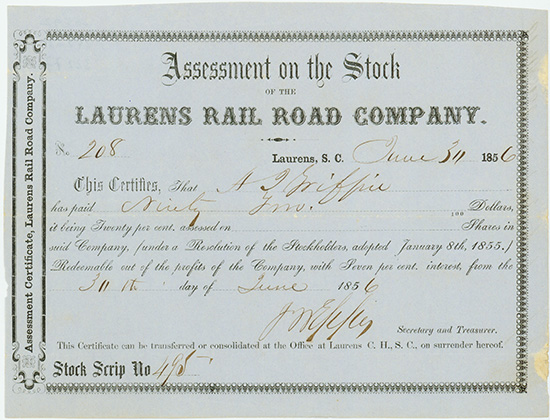 Assessment on the Stock
OF THE
LAURENS RAIL ROAD COMPANY.
No. 208
Laurens, S. C. June 30 1856
This Certifies, That A Griffin
has paid Ninety Two. 100 Dollars,
it being Twenty per cent. assessed on Shares in
said Company, (under a Resolution of the Stockholders, adopted January 8th, 1855.)
Redeemable out of the profits of the Company, with Seven per cent. interest, from the
30th day of June 1856
Secretary and Treasurer.
This Certificate can be transferred or consolidated at the Office at Laurens C. H., S. C., on surrender hereof.
Stock Scrip No 495
Assessment Certificate, Laurens Rail Road Company.